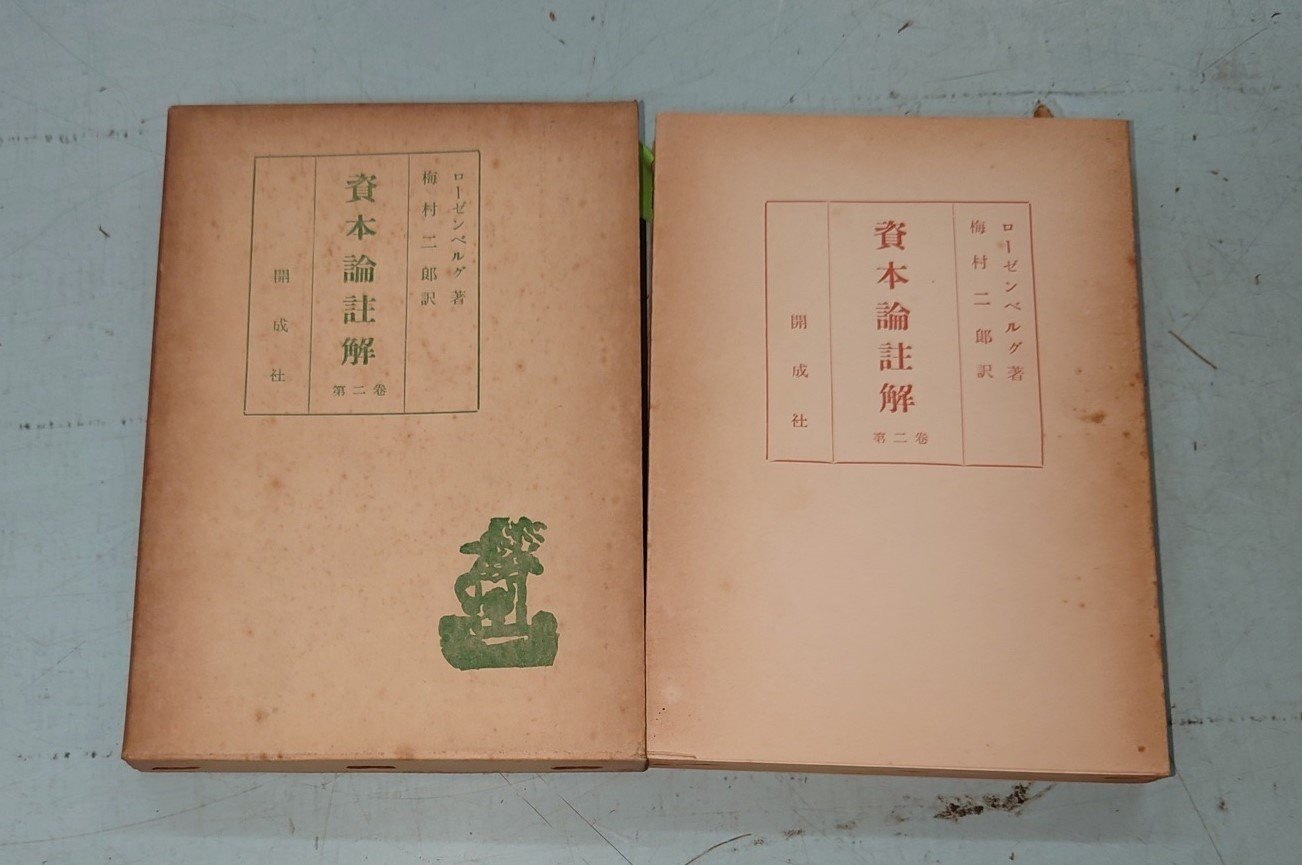 ローゼンベルグ著
梅村二郎訳
資本論註解
第二巻
開成社
ローゼンベルグ著
梅村二郎訳
資本論註解
第二巻
開成社